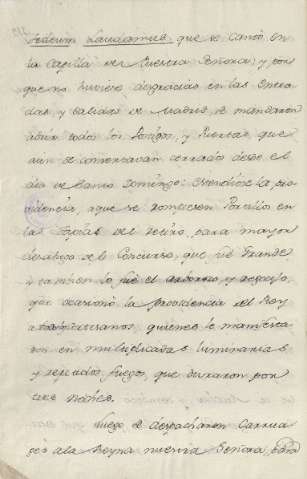 Tedeum Laudamus que se Cantó en
la Capilla de Nuestra Señora; y por
que no huviese desgracias en las Entra
das, y Salidas de Madrid, se mandaron
abrir todos los Portigos, y Puertas que
aun se conservavan cerrados desde el
dia de Domingo: estendiose la pro
videncia, a que se rompiesen Portillos en
las Tapias del Retiro, para mayor
desahogo de el Concurso, que fué grande
y tambien lo fué el alborozo, y regocijo,
que ocasionó la presidencia del Rey
a quienes lo manifesta
ron en multiplicadas luminarias
y repetidos fuegos, que duraron por
tres Noches.
Luego se despacharon Carrua
ges a la Reyna nuestra Señora, para